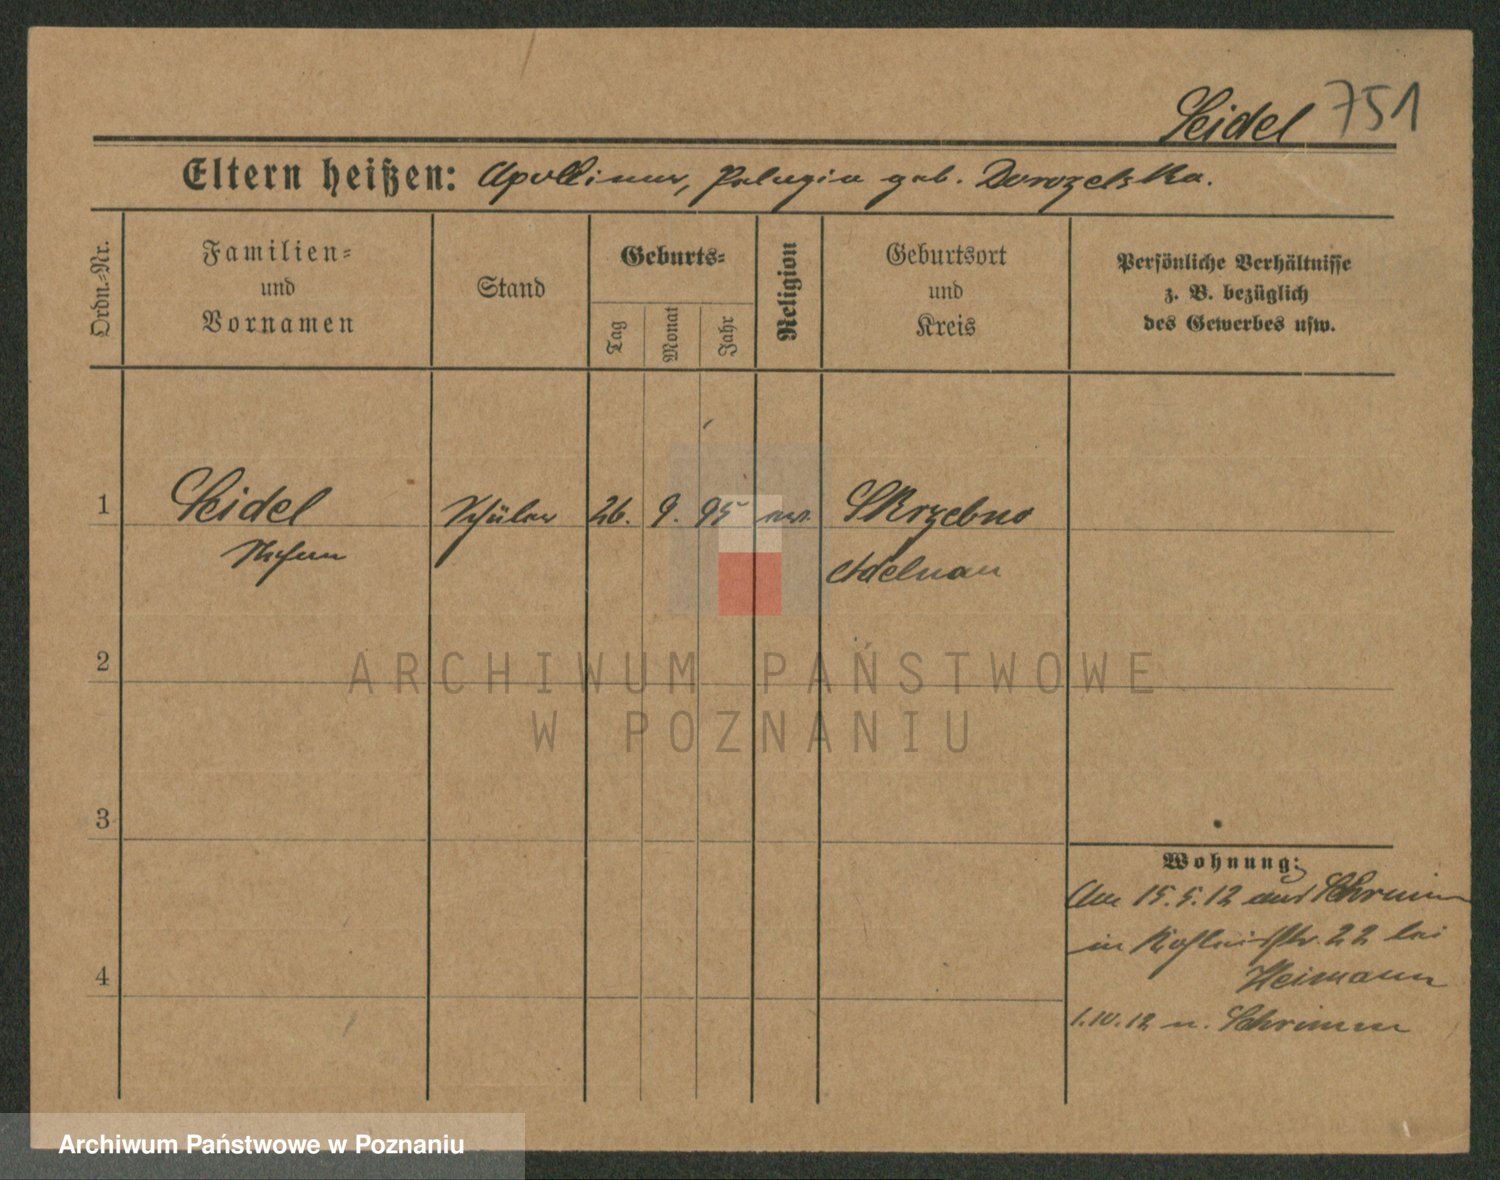 Seidel 751
Eltern heißen: Apollinar, Pelagia geb. Dorozelska.
Ordn.-Nr.
Familien-
und
Vornamen
Stand
Geburts-
Tag
Monat
Jahr
Religion
Geburtsort
und
Kreis
Persönliche Verhältnisse
z. B. bezüglich
des Gewerbes usw.
1 Seidel Schüler 26. 9. 95 Skrzebno
Stefan Adelnau
2
3
4
Wohnung:
Am 15.5.12 aus Schrimm
in 22 bei
Heimann
1.10.12 n. Schrimm
ARCHIWUM PAŃSTWOWE
W POZNANIU
Archiwum Państwowe w Poznaniu